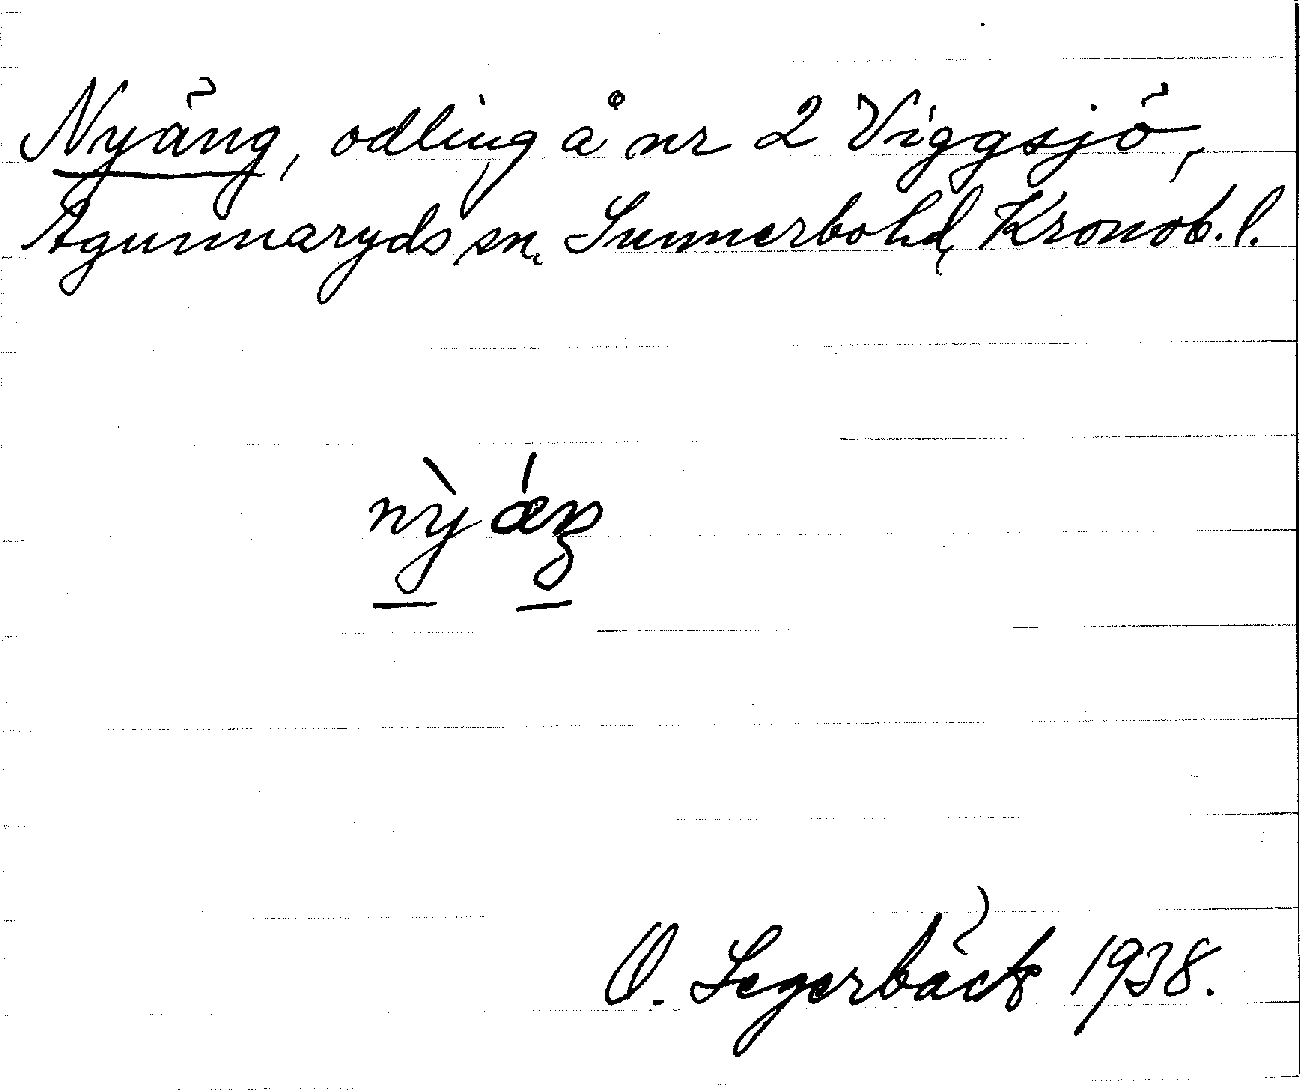 Nyäng, odling å nr 2 Viggsjö,
Agunnaryds sn. Sunnerbo hd, Kronob. l.
nỳ ǽŋ
O. Segerbäck 1938.